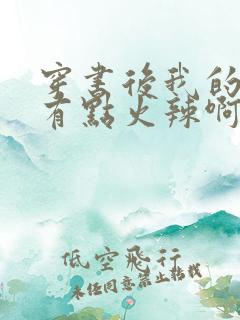 穿書後我的
有點火辣啊
低空飛行
未經同意禁止轉載